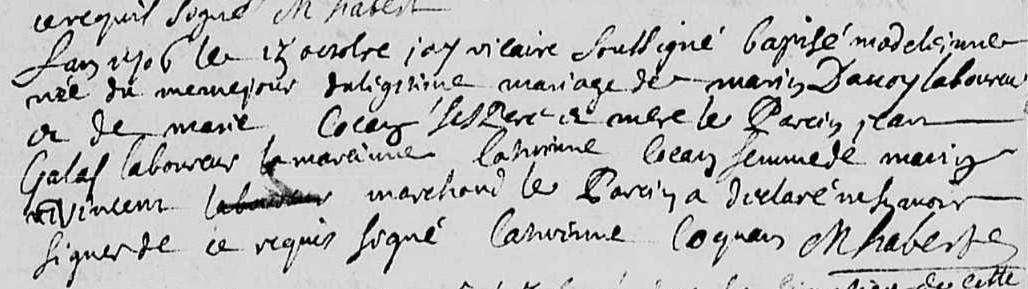 ce requis signé M habert
Lan 1706 le 15 octobre jay vicaire soussigné baptisé madeleinne
née du mesme jour du legitime mariage de marin Dauoy laboureur
et de marie Cocan ses Pere et mere le Parein jean
Galas laboureur la mareinne Catrinne Cocan femme de marin
Vincent laboureur marchand le Parein a declaré ne scavoir
signer de ce requis signé Catrinne Coquan M habert
de cette